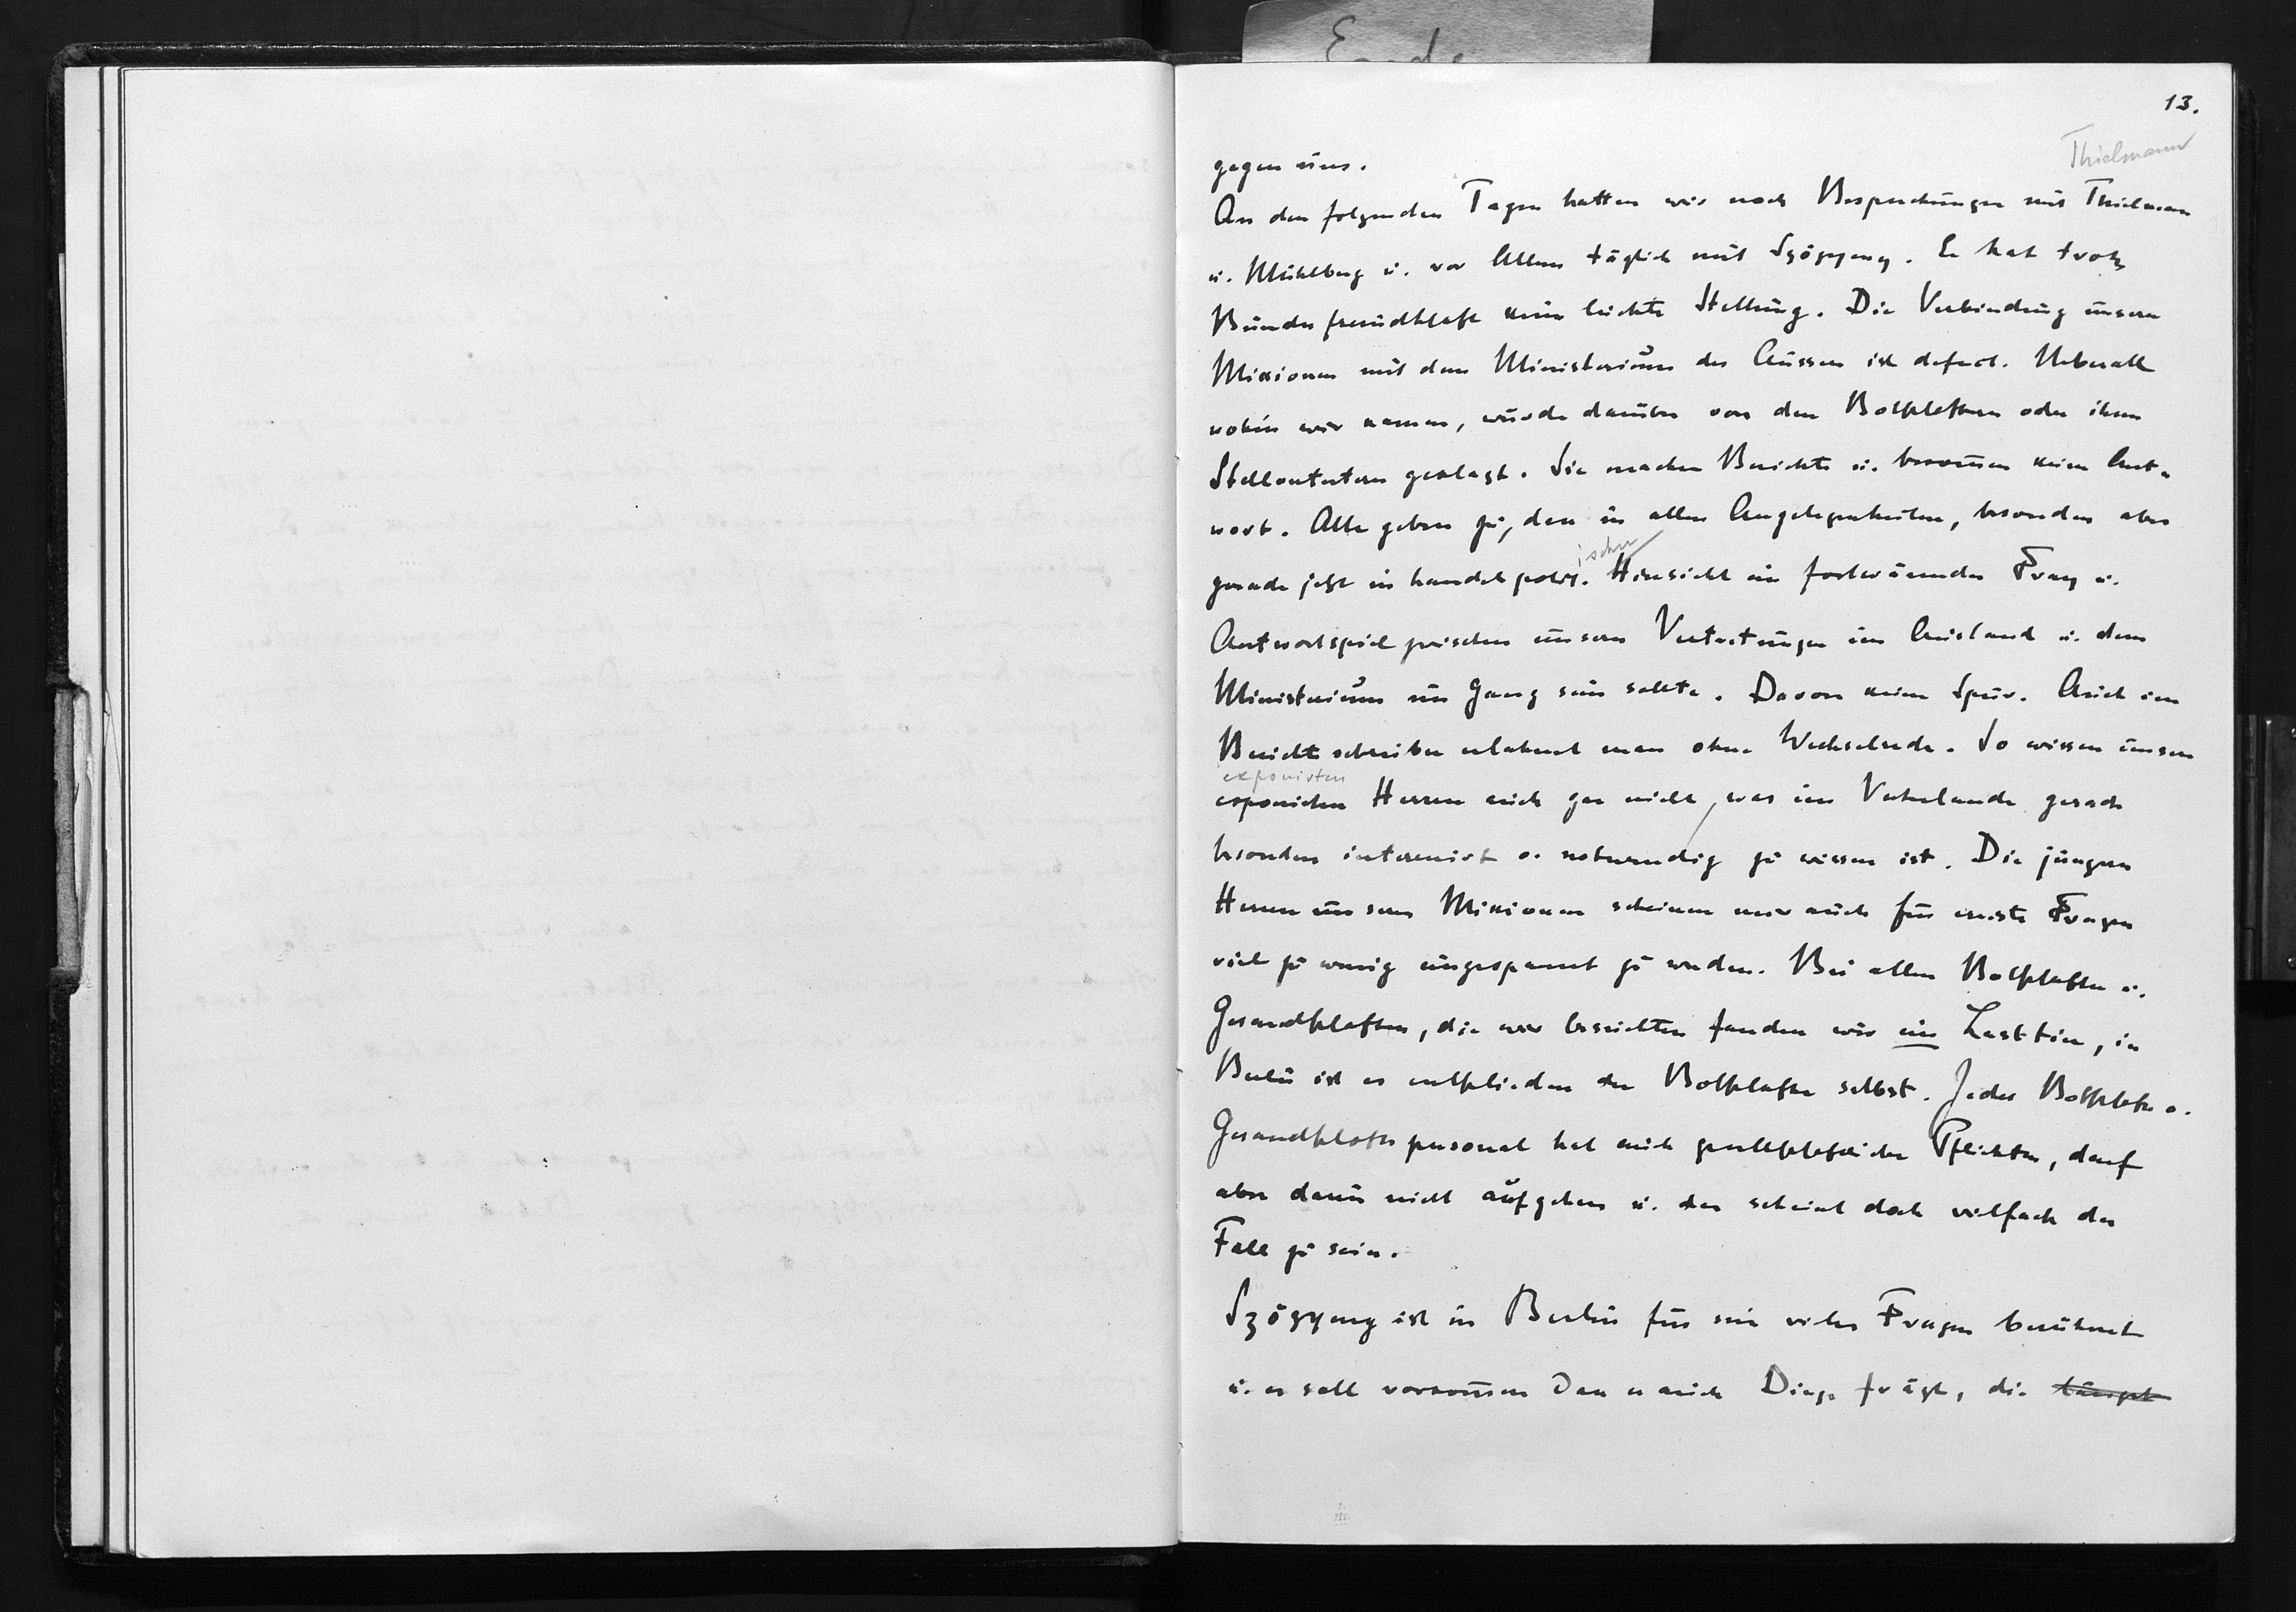 Ende
13.
Thielmann
gegen uns.
An den folgenden Tagen hatten wir noch Besprechungen mit Thielman
u. Mühlberg u. vor Allem täglich mit Szögyeny. Er hat trotz
Bundesfreundschaft keine leichte Stellung. Die Verbindung unserer
Missionen mit dem Ministerium des Äussern ist defect. Ueberall
wohin wir kamen, wurde darüber von den Botschaftern oder ihren
Stellvertretern geklagt. Sie machen Berichte u. bekom̄en keine Ant-
wort. Alle geben zu, dass in allen Angelegenheiten, besonders aber
ischer
gerade jetzt in handelspolit. Hinsicht ein fortwärendes Frag u.
Antwortspiel zwischen unseren Vertretungen im Ausland u. dem
Ministerium im Gang sein sollte. Davon keine Spur. Auch im
Bericht schreiben erlahmt man ohne Wechselrede. So wissen unsere
exponirten
exponirten Herren auch gar nicht, was im Vaterlande gerade
besonders interessirt o. notwendig zu wissen ist. Die jüngern
Herren unserer Missionen scheinen mir auch für ernste Fragen
viel zu wenig eingespannt zu werden. Bei allen Botschaften u.
Gesandtschaften, die wir besuchten fanden wir ein Lasttier, in
Berlin ist es entschieden der Botschafter selbst. Jedes Botschafts o.
Gesandtschaftspersonal hat auch gesellschaftliche Pflichten, darf
aber darin nicht aufgehen u. das scheint doch vielfach der
Fall zu sein.
Szögyeny ist in Berlin für sein vieles Fragen berühmt
u. es soll vorkom̄en dass er auch Dinge frägt, die längst